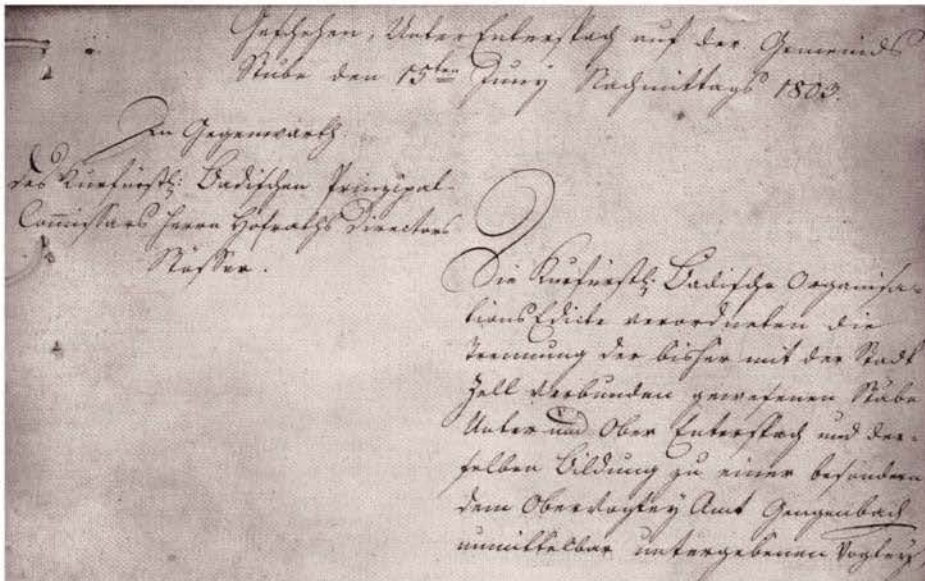 Geschehen, Unter Entersbach auf der Gemeinds
Stube den 15ten Juny Nachmittags 1803.
In Gegenwarth
des Kurfürstl: Badischen Prinzipal-
Commissars Herrn Hofraths Directors
Stösser.
Die Kurfürstl: Badische Organisa-
tions Edicte verordneten die
Trennung der bisher mit der Stadt
Zell verbunden gewesenen Stäbe
Unter und Ober Entersbach und der-
selben Bildung zu einer besondern
dem Obervogtey Amt Gengenbach
unmittelbar untergebenen Vogtey,